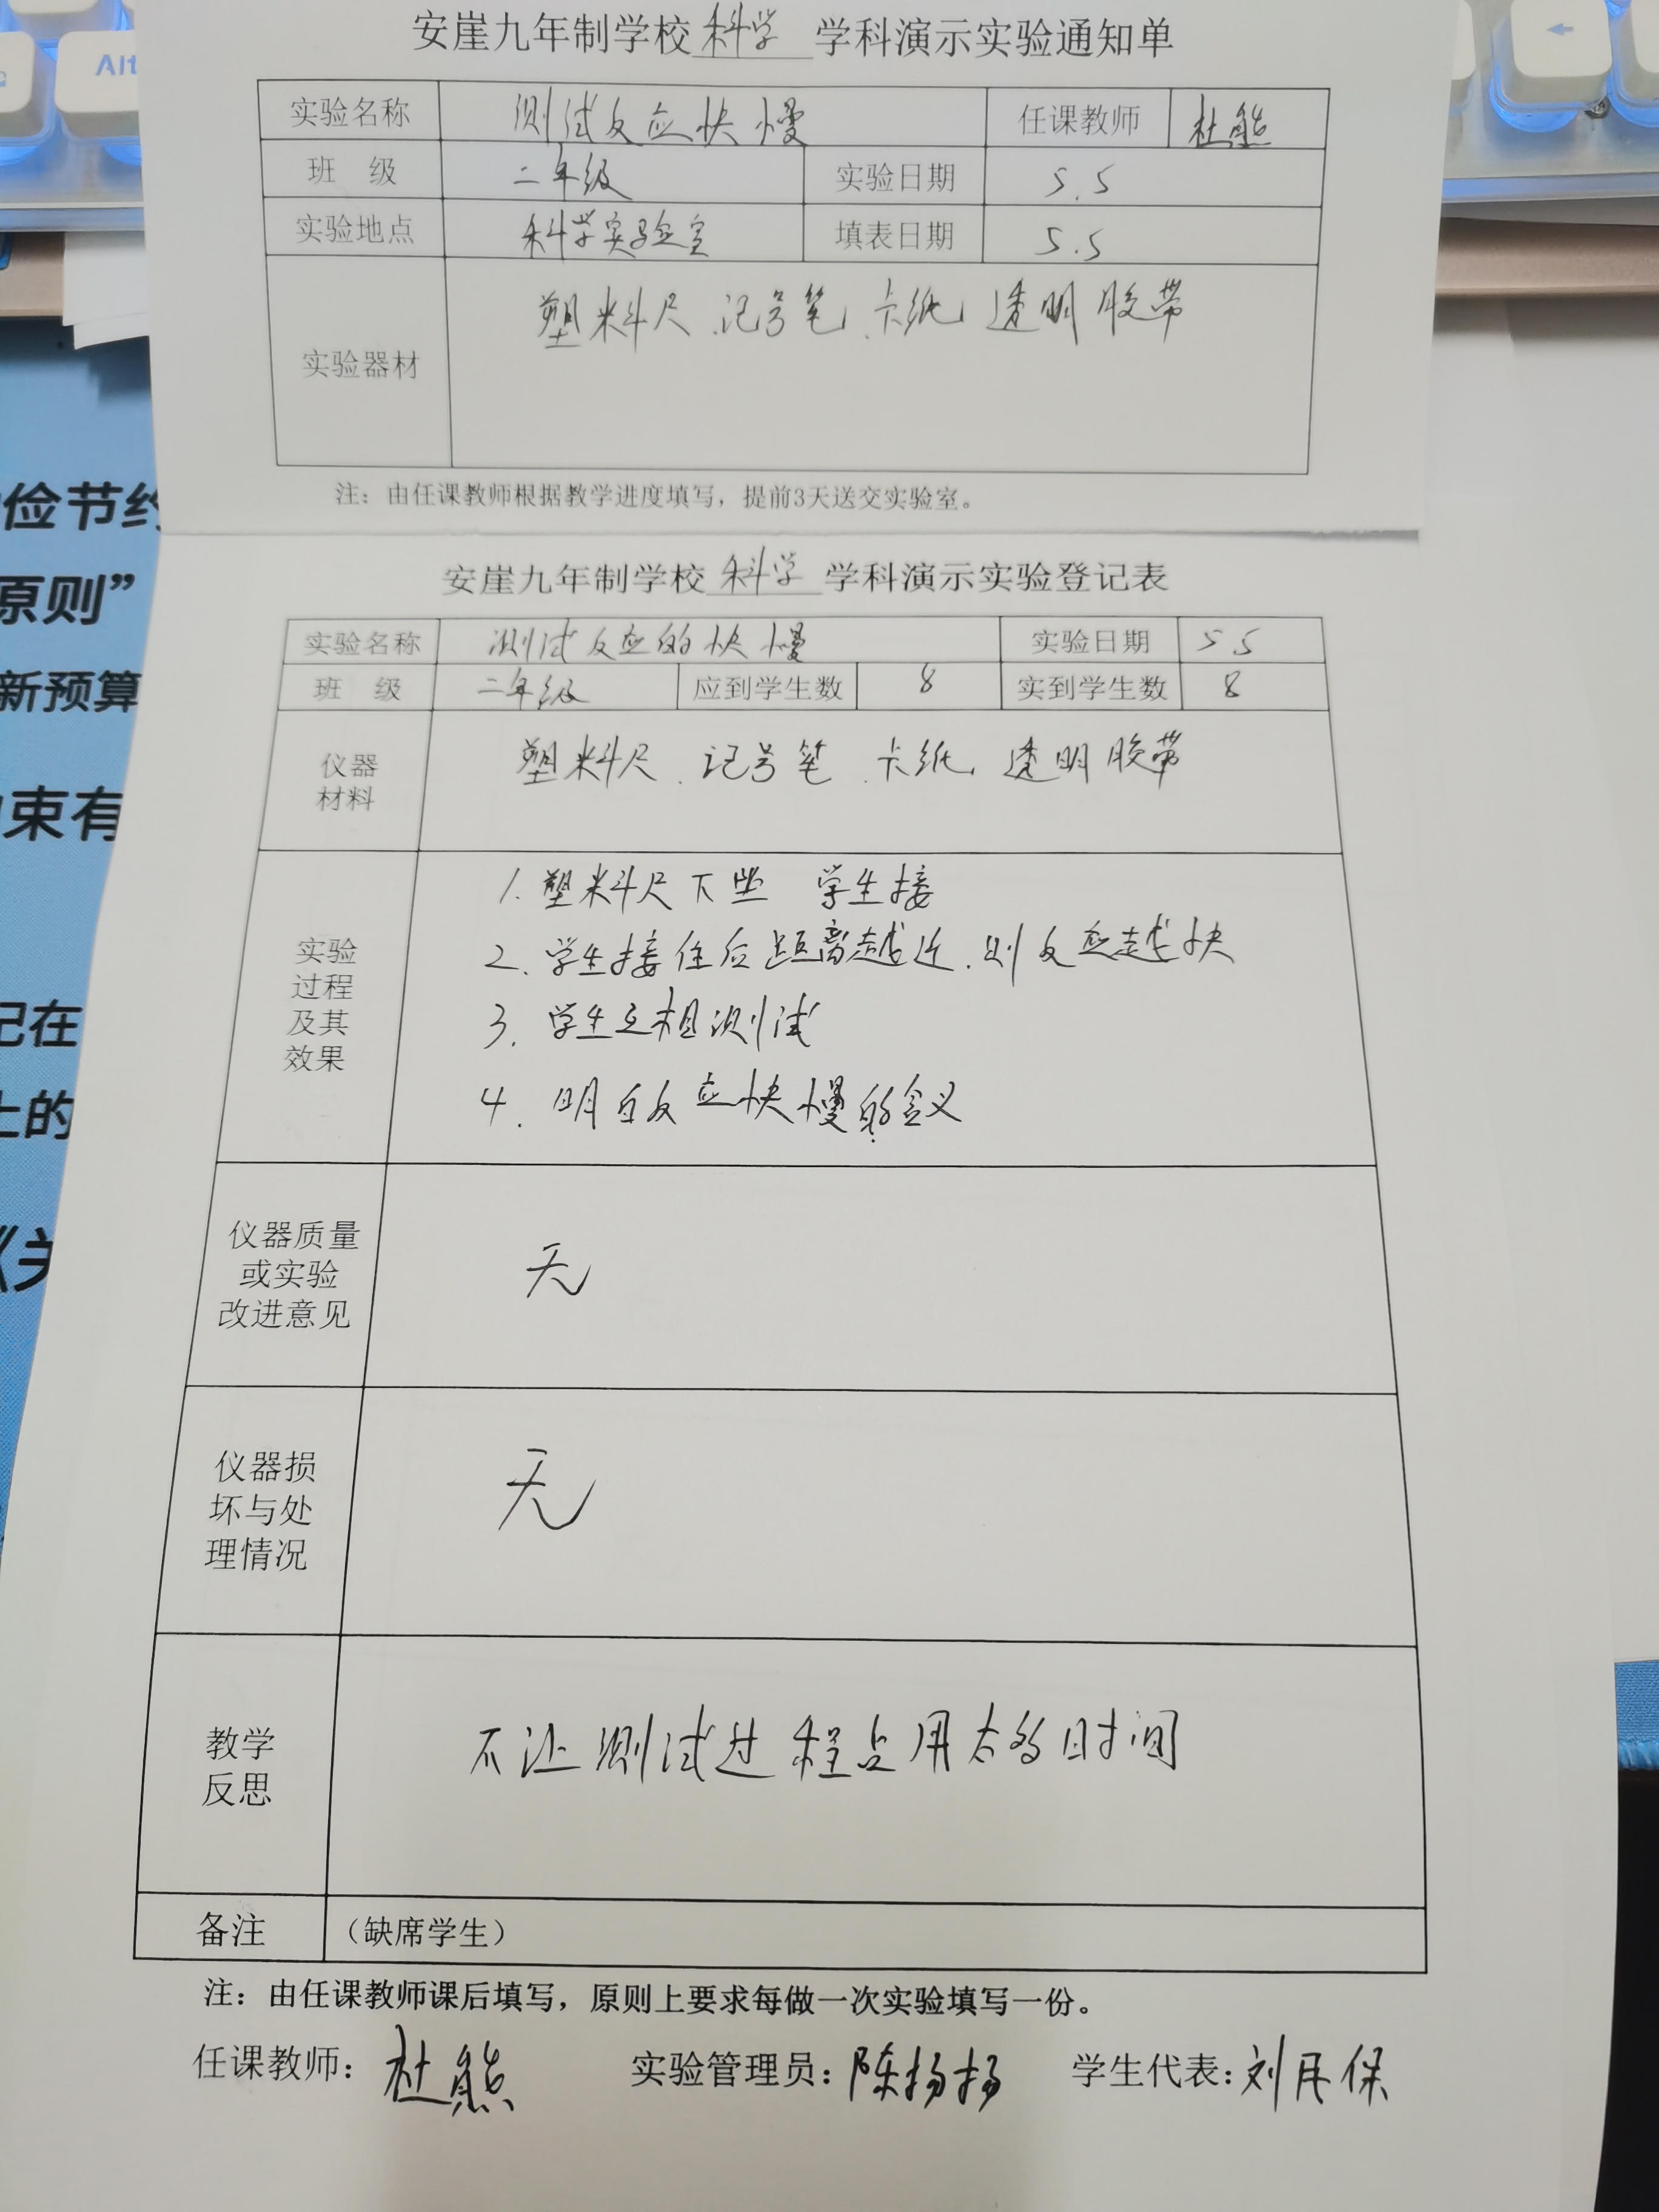 Alt
安崖九年制学校科学学科演示实验通知单
实验名称 测试反应快慢 任课教师 杜熊
班 级 二年级 实验日期 5.5
实验地点 科学实验室 填表日期 5.5
实验器材 塑料尺、记号笔、卡纸、透明胶带
注：由任课教师根据教学进度填写，提前3天送交实验室。
俭节约
原则”
新预算
束有
记在
上的
《关
安崖九年制学校科学学科演示实验登记表
实验名称 测试反应的快慢 实验日期 5.5
班 级 二年级 应到学生数 8 实到学生数 8
仪器
材料
塑料尺、记号笔、卡纸、透明胶带
实验
过程
及其
效果
1. 塑料尺下坠 学生接
2. 学生接住后距离越近，则反应越快
3. 学生互相测试
4. 明白反应快慢的含义
仪器质量
或实验
改进意见
无
仪器损
坏与处
理情况
无
教学
反思
不让测试过程占用太多时间
备注 （缺席学生）
注：由任课教师课后填写，原则上要求每做一次实验填写一份。
任课教师：杜熊 实验管理员：陈扬扬 学生代表：刘保